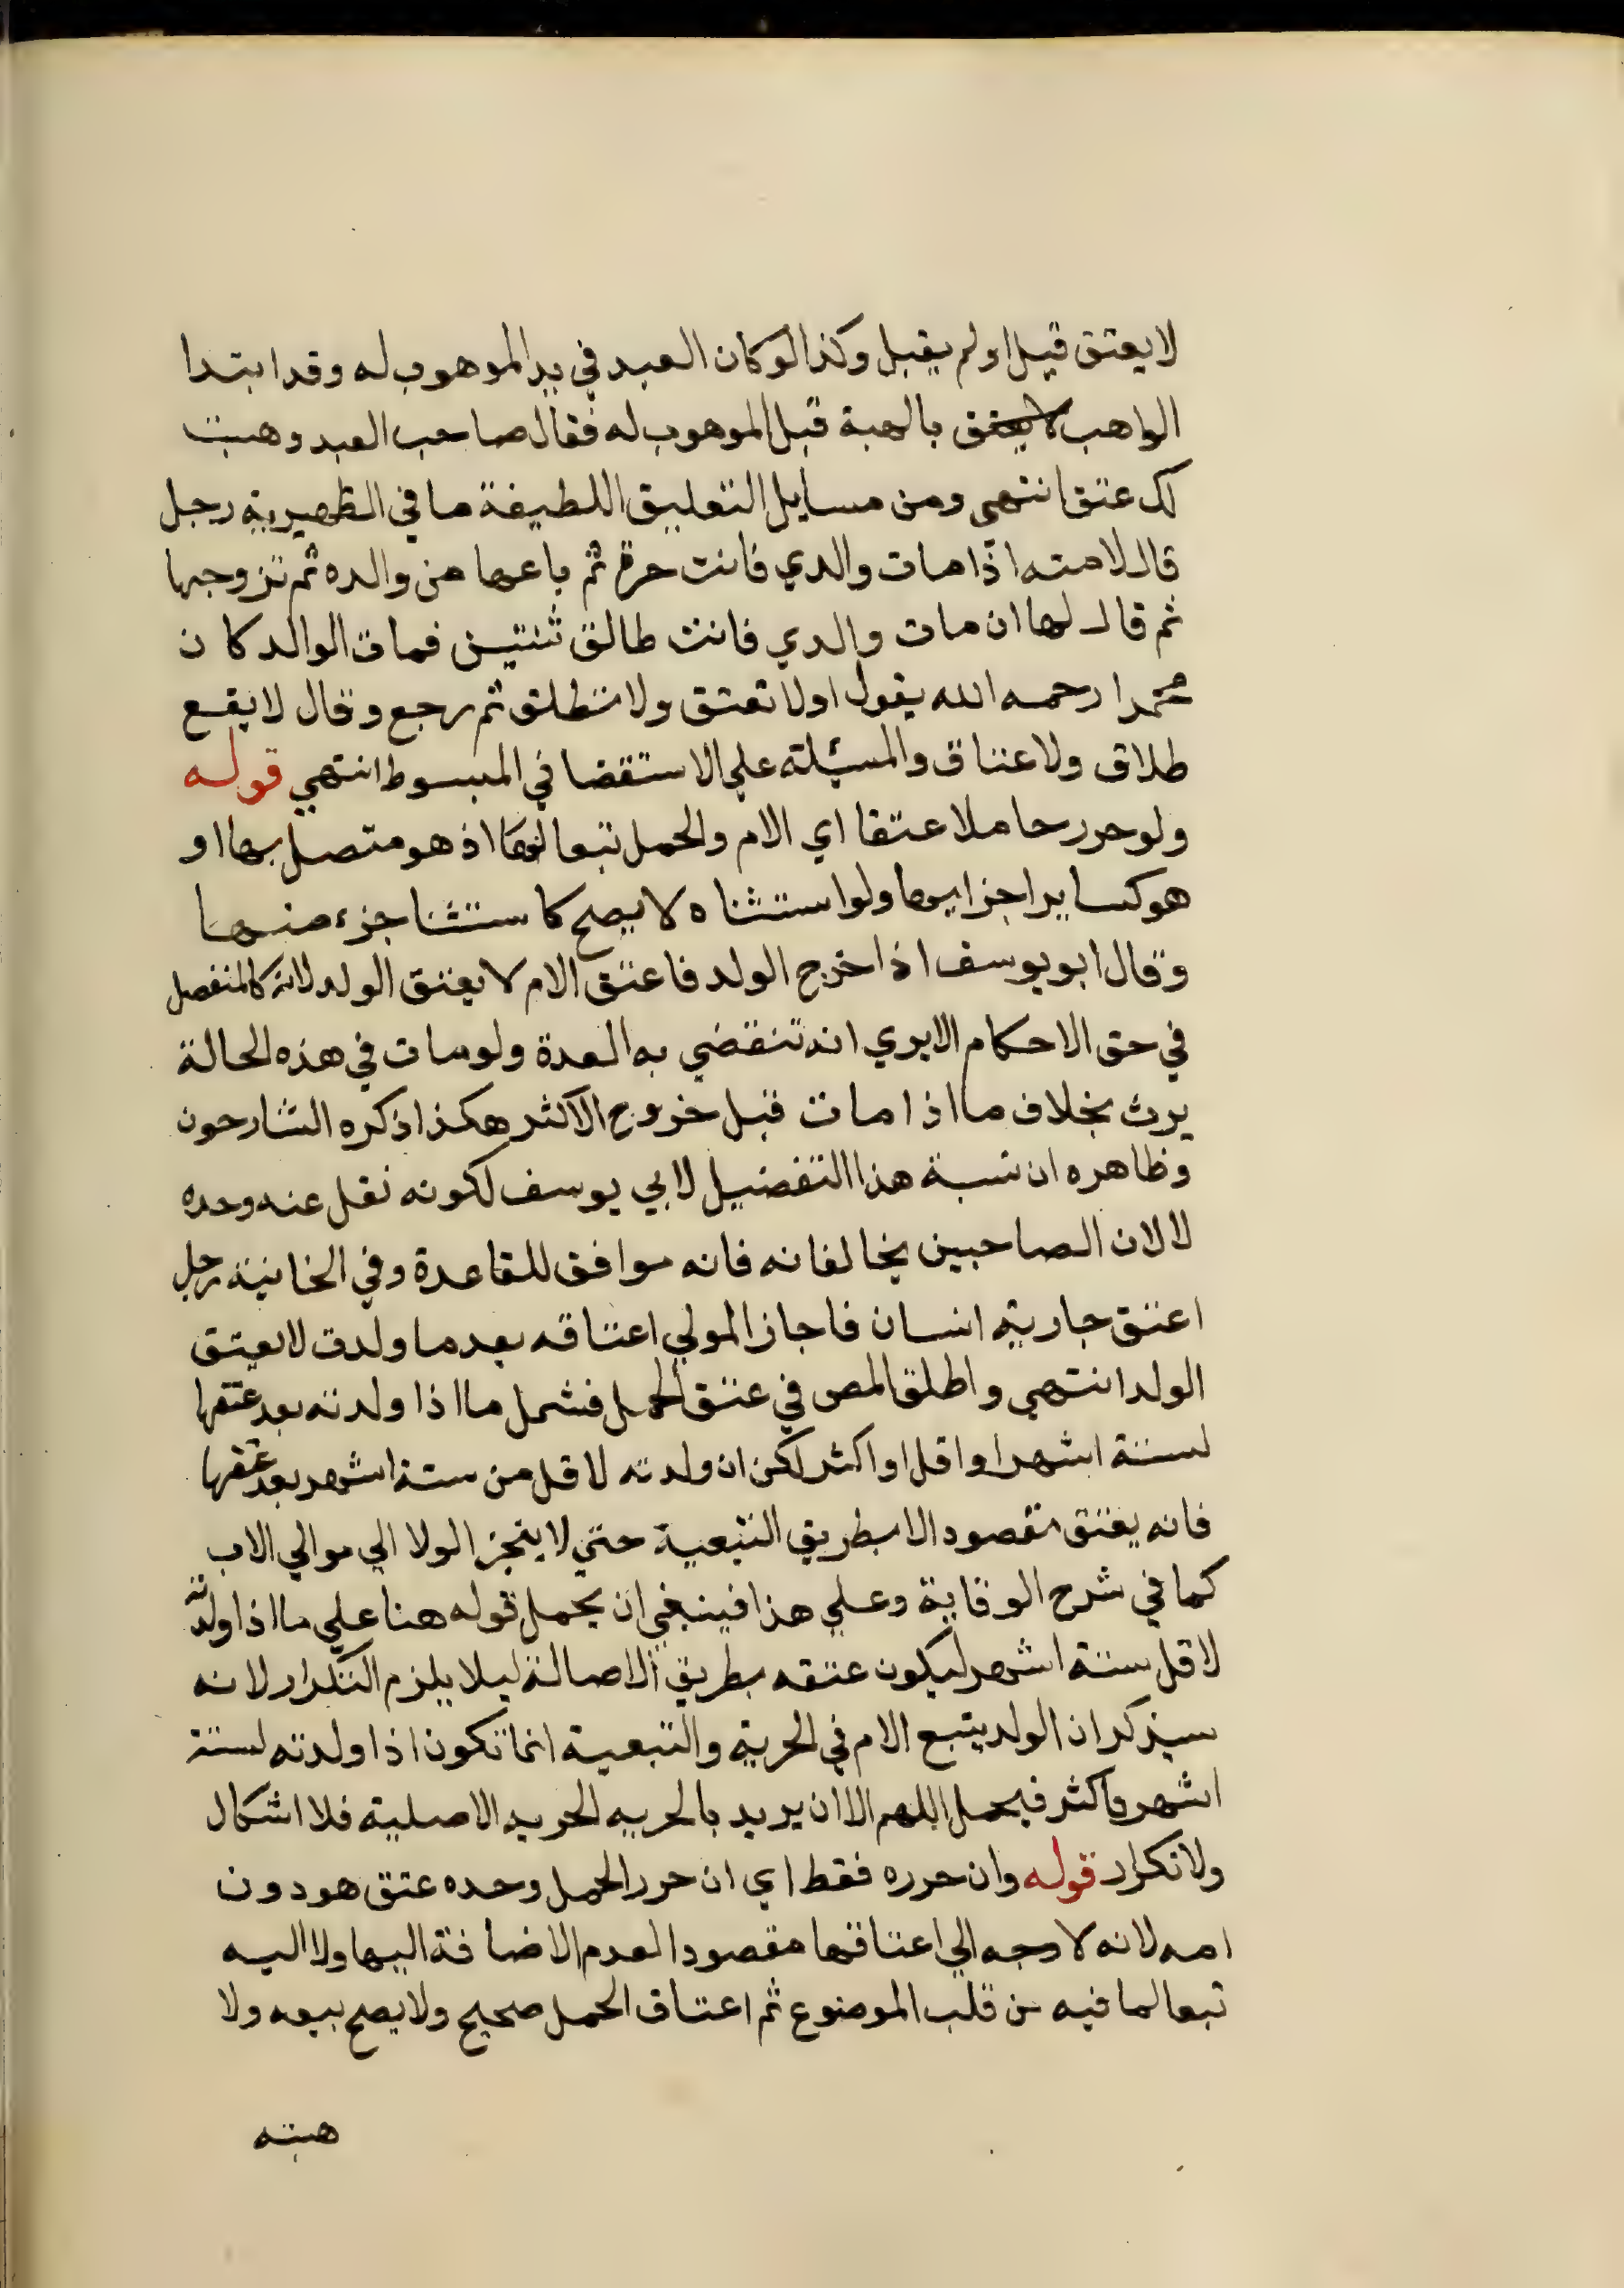 لا يعتق قبل او لم يقبل وكذا لو كان العبد في يد الموهوب له وقد ابتدا
الواهب بالهبة قبل الموهوب له فقال صاحب العبد وهبت
لك عتق انتهي ومن مسايل التعليق اللطيفة ما في الظهيرية رجل
قال لامته اذا مات والدي فانت حرة ثم باعها من والده ثم تزوجها
ثم قال لها ان مات والدي فانت طالق ثنتين فمات الوالد كان
محمدا رحمه الله يقول اولا تعتق ولا تطلق ثم رجع وقال لا يقع
طلاق ولا عتاق والمسئلة علي الاستقضا في المبسوط انتهي قوله
ولو حرر حاملا عتقا اي الام والحمل تبعا لها اذ هو متصل بها او
هو كساير اجزايها ولو استثناه لا يصح كاستثنا جزء منها
وقال ابو يوسف اذا خرج الولد فاعتق الام لا يعتق الولد لانه كالمنفصل
في حق الاحكام الا يري انه تنقضي به العدة ولو مات في هذه الحالة
يرث بخلاف ما اذا مات قبل خروج الاكثر هكذا ذكره الشارحون
وظاهره ان نسبة هذا التفضيل لابي يوسف لكونه نقل عنه وحده
لا لان الصاحبين يخالفانه فانه موافق للقاعدة وفي الخانية رجل
اعتق جارية انسان فاجاز المولي اعتاقه بعد ما ولدت لا يعتق
الولد انتهي واطلق المص في عتق الحمل فشمل ما اذا ولدته بعد عتقها
لستة اشهر او اقل او اكثر لكن ان ولدته لاقل من ستة اشهر بعد عتقها
فانه يعتق مقصودا لا بطريق التبعية حتي لا ينجز الولا الي موالي الاب
كما في شرح الوقاية وعلي هذا فينبغي ان يحمل قوله هنا علي ما اذا ولدته
لاقل ستة اشهر ليكون عتقه بطريق الاصالة ليلا يلزم التكرار لانه
سيذكر ان الولد يتبع الام في الحرية والتبعية انما تكون اذا ولدته لستة
اشهر واكثر فيحمل اللهم الا ان يريد بالحريه الحريه الاصلية فلا اشكال
ولا تكرار قوله وان حرره فقط اي ان حرر الحمل وحده عتق هو دون
امه لانه لا وجه الي اعتاقها مقصودا لعدم الاضافة اليها ولا اليه
تبعا لما فيه من قلب الموضوع ثم اعتاق الحمل صحيح ولا يصح بيعه ولا
هبته